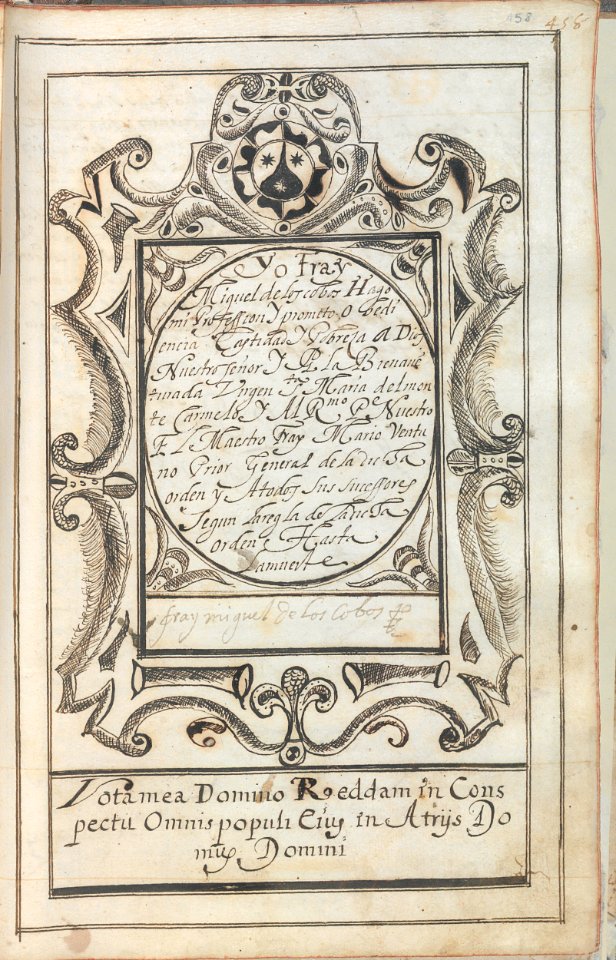 458
458
Yo Fray
Miguel de los cobos Hago
mi Profession Y prometo Obedi
encia Castidad Y Pobresa A Dios
Nuestro señor Y A la Bienave
turada Virgen Sta Maria del mon
te Carmelo Y Al Rmo Pe Nuestro
EL Maestro Fray Mario Ventu
no Prior General de la dicha
orden y A todos sus sucessores
Segun la regla de la dicha
orden Hasta
la muerte
fray miguel de los Cobos
Vota mea Domino Reddam in Cons
pectu Omnis populi Eius in Atrijs Do
mus Domini